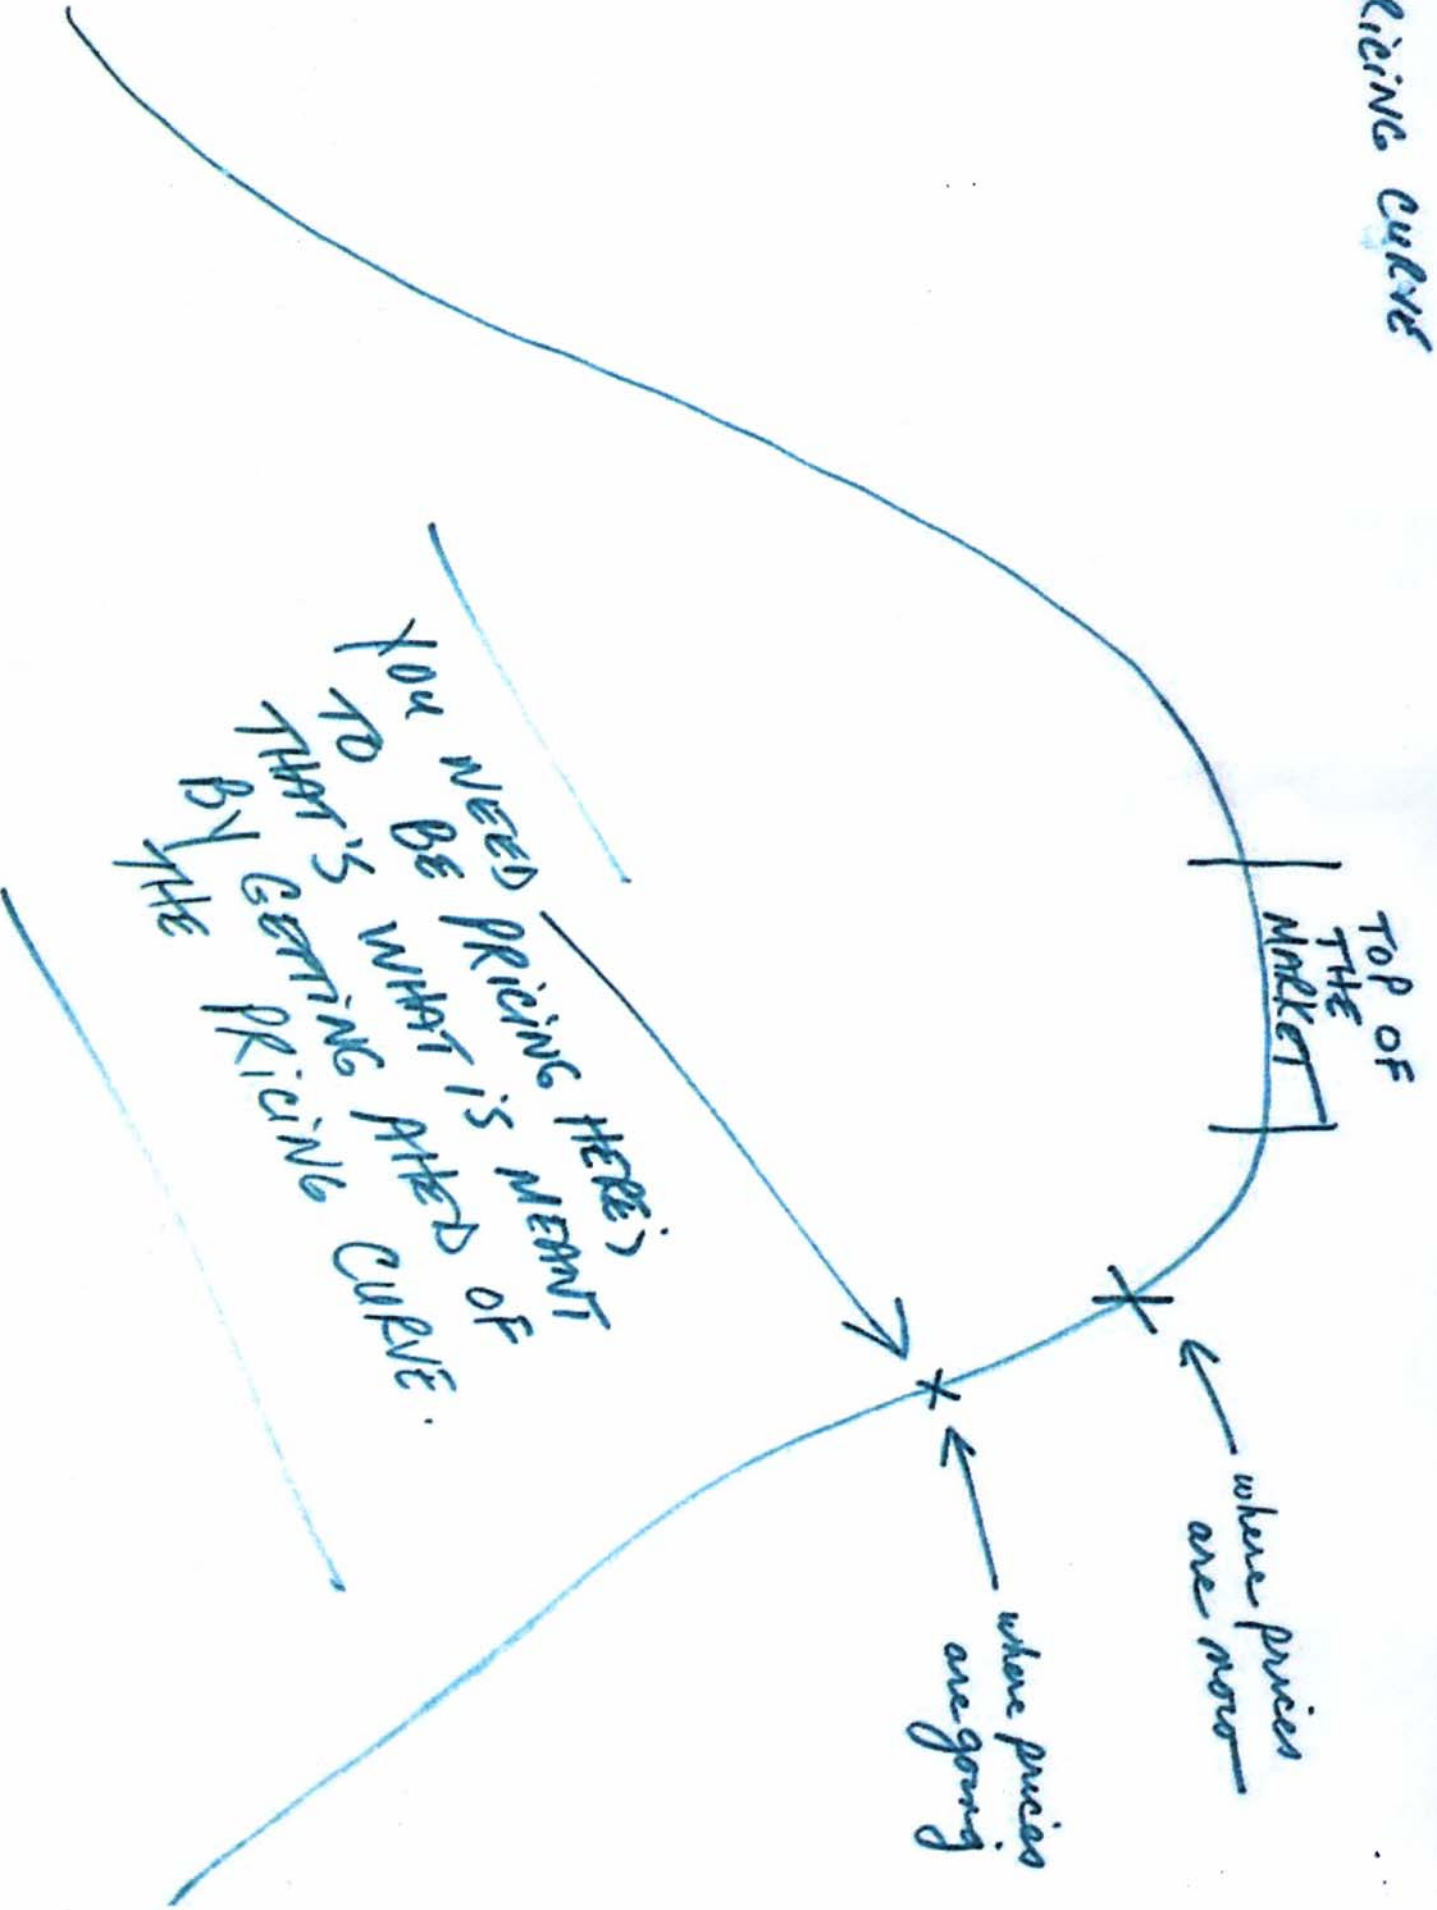 RICING CURVE
TOP OF
THE
MARKET
where prices
are now
where prices
are going
YOU NEED
TO BE PRICING HERE;
THAT'S WHAT IS MEANT
BY GETTING AHED OF
THE PRICING CURVE.